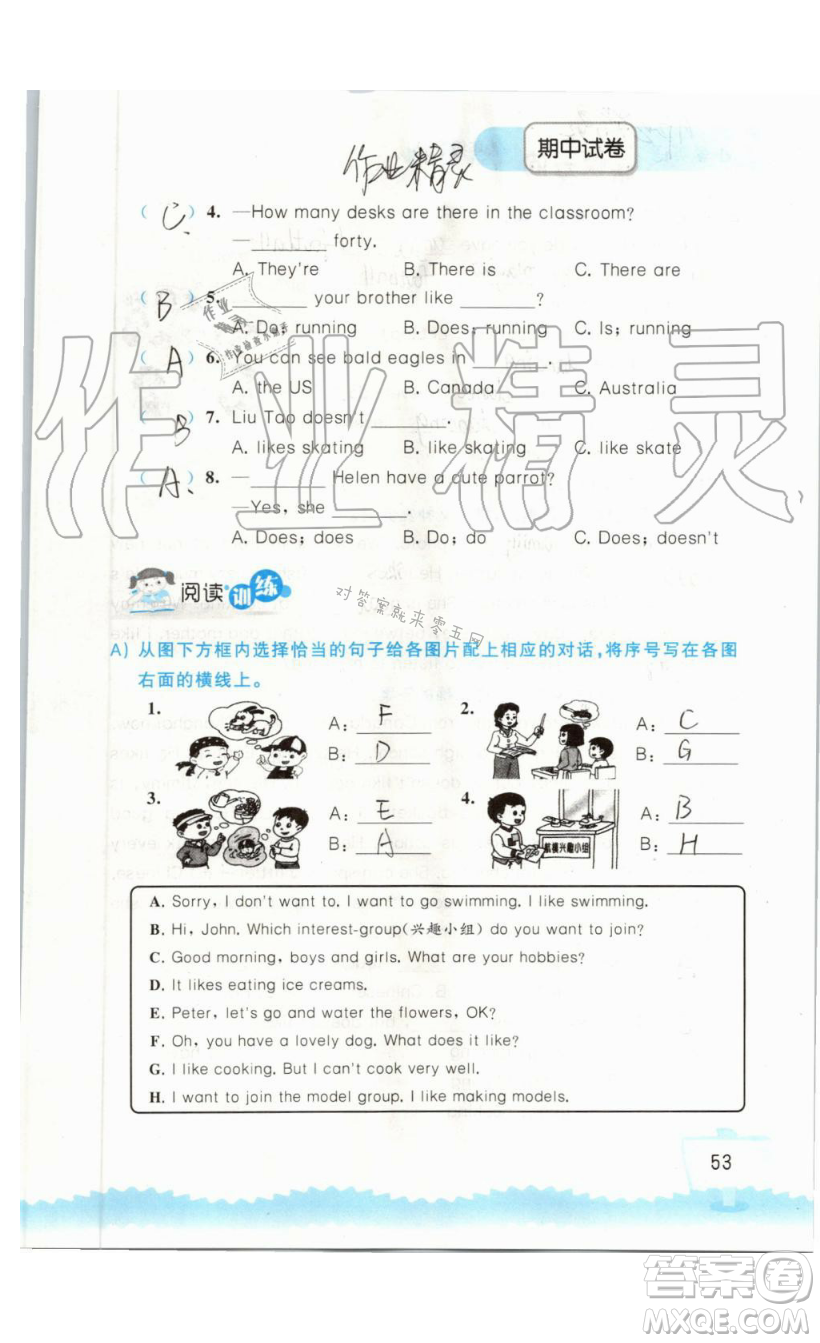 期中试卷
作业精灵
( C ) 4. —How many desks are there in the classroom?
—________ forty.
A. They're B. There is C. There are
( B ) 5. ________ your brother like ________?
A. Do; running B. Does; running C. Is; running
( A ) 6. You can see bald eagles in ________.
A. the US B. Canada C. Australia
( B ) 7. Liu Tao doesn't ________.
A. likes skating B. like skating C. like skate
( A ) 8. —________ Helen have a cute parrot?
—Yes, she ________.
A. Does; does B. Do; do C. Does; doesn't
作业精灵
阅读训练
对答案就来零五网
A) 从图下方框内选择恰当的句子给各图片配上相应的对话,将序号写在各图
右面的横线上。
1. A: F
B: D
2. A: C
B: G
3. A: E
B: A
4. A: B
B: H
航模兴趣小组
A. Sorry, I don't want to. I want to go swimming. I like swimming.
B. Hi, John. Which interest-group(兴趣小组) do you want to join?
C. Good morning, boys and girls. What are your hobbies?
D. It likes eating ice creams.
E. Peter, let's go and water the flowers, OK?
F. Oh, you have a lovely dog. What does it like?
G. I like cooking. But I can't cook very well.
H. I want to join the model group. I like making models.
53
答案圈
MXQE.COM